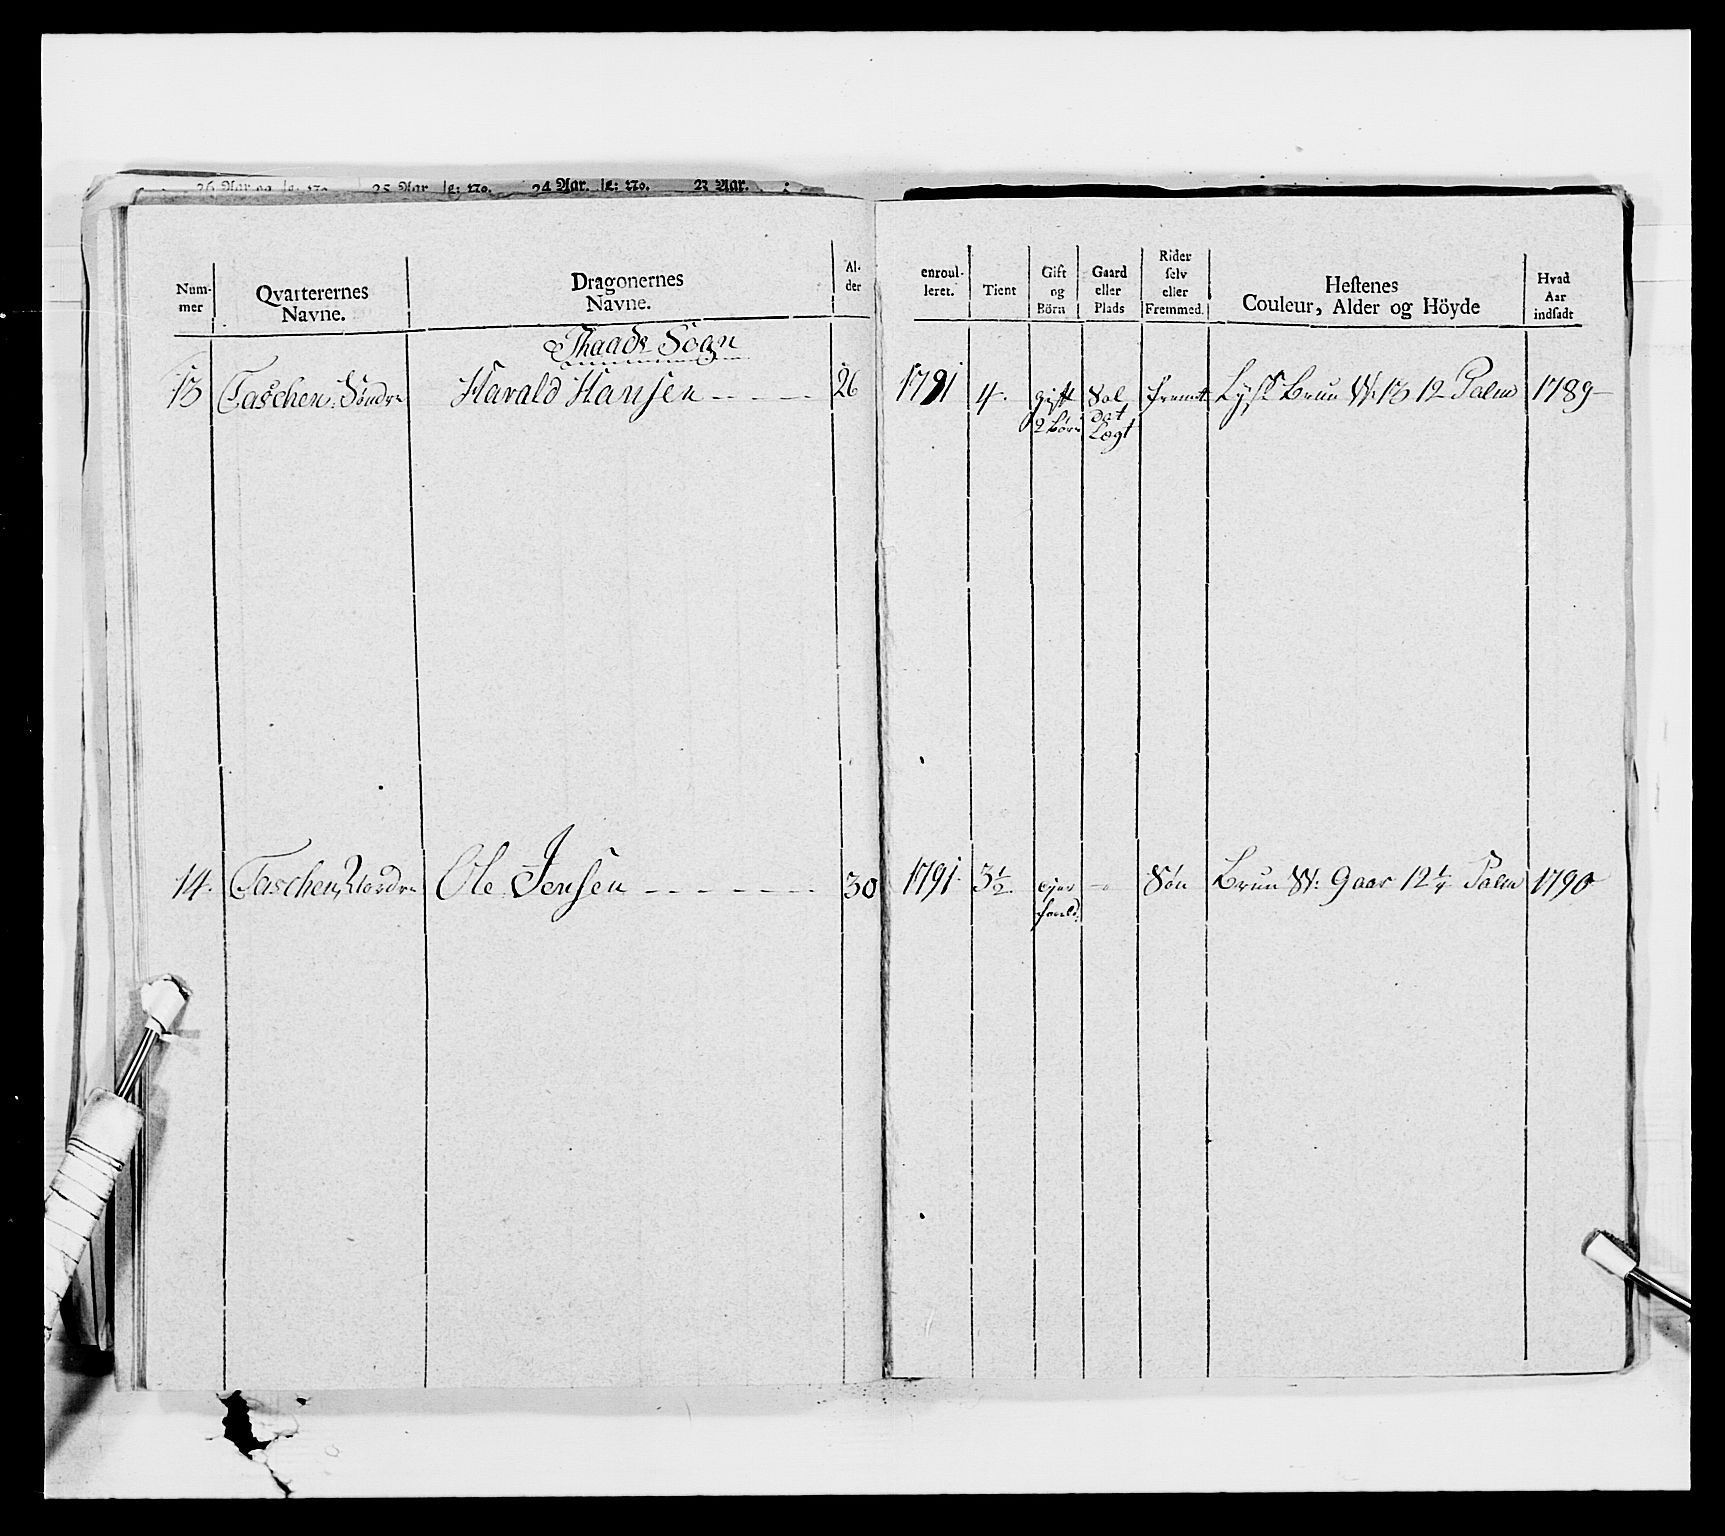 26 Aar 25 Aar. No. 24 Aar. No. 23 Aar.
Num-
mer
Qvarterernes
Navne.
Dragonernes
Navne.
Al-
der
enroul-
leret.
Tient
Gift
og
Börn
Gaard
eller
Plads
Rider
selv
eller
Fremmed.
Hestenes
Couleur, Alder og Höyde
Hvad
Aar
indsadt
Thaads Sogn
13 Taschen Søndre Harald Hansen 26 1791 4. gift Sol fremt Lys Brun W: 13 12 Palm 1789
2 børn dat
Lægt
14. Taschen, Nordre Ole Jensen 30 1791 3½ Søn Brun W: 9 aar 12¼ Palm 1790